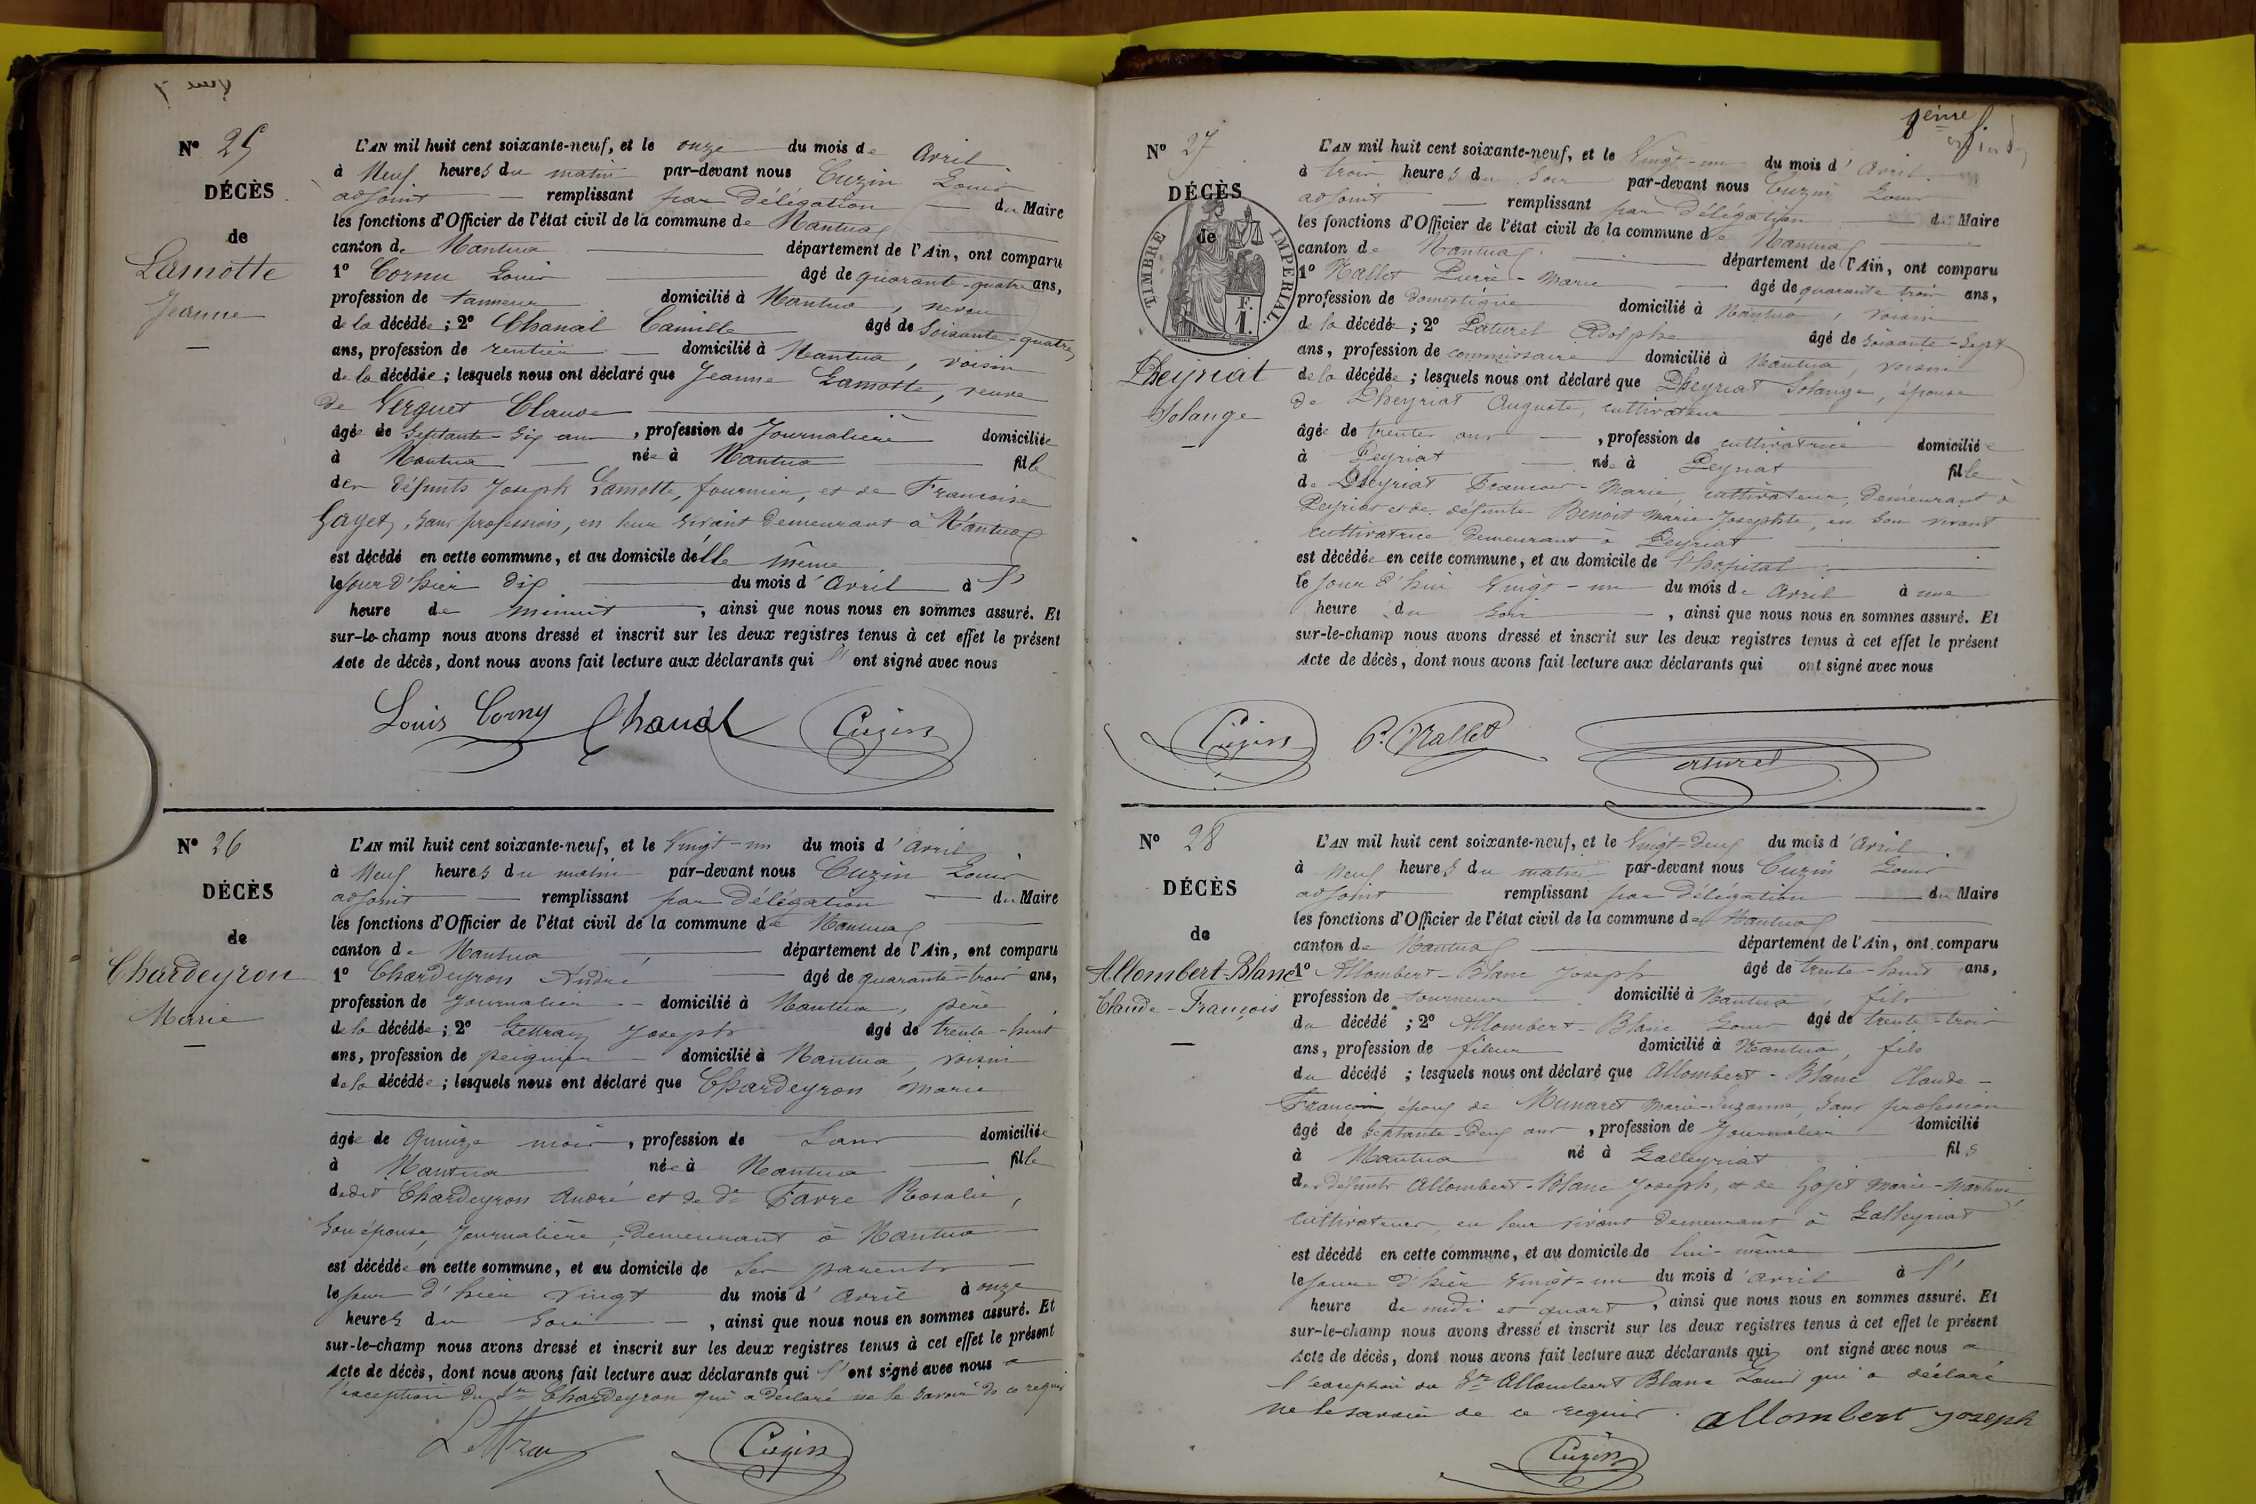 N° 25
DÉCÈS
de
Lamotte
Jeanne
L'AN mil huit cent soixante-neuf, et le onze du mois de Avril
à Neuf heures du matin par-devant nous Cuzin Louis
adjoint remplissant par délégation du Maire
les fonctions d'Officier de l'état civil de la commune de Nantua
canton de Nantua département de l'Ain, ont comparu
1° Cornu Louis âgé de quarante-quatre ans,
profession de tanneur domicilié à Nantua, neveu
de la décédée; 2° Chanal Camille âgé de Soixante-quatre
ans, profession de rentier domicilié à Nantua, voisin
de la décédée; lesquels nous ont déclaré que Jeanne Lamotte, veuve
de Verguet Claude
âgée de Septante-Six ans, profession de Journalière domiciliée
à Nantua née à Nantua fille
des défunts Joseph Lamotte, fournier, et de Francoise
Gayet, sans profession, en leur vivant demeurant à Nantua
est décédé en cette commune, et au domicile d'elle même
le jour d'hier dix du mois d'Avril à l'
heure de minuit, ainsi que nous nous en sommes assuré. Et
sur-le-champ nous avons dressé et inscrit sur les deux registres tenus à cet effet le présent
Acte de décès, dont nous avons fait lecture aux déclarants qui l' ont signé avec nous
Louis Corny Chanal Cuzin
N° 26
DÉCÈS
de
Chardeyron
Marie
L'AN mil huit cent soixante-neuf, et le Vingt-un du mois d'Avril
à Neuf heures du matin par-devant nous Cuzin Louis
adjoint remplissant par délégation du Maire
les fonctions d'Officier de l'état civil de la commune de Nantua
canton de Nantua département de l'Ain, ont comparu
1° Chardeyron André âgé de quarante-trois ans,
profession de Journalier domicilié à Nantua, père
de la décédée; 2° Lettraz Joseph âgé de trente-huit
ans, profession de peignier domicilié à Nantua, voisin
de la décédée; lesquels nous ont déclaré que Chardeyron Marie
âgée de Quinze mois, profession de Sans domiciliée
à Nantua née à Nantua fille
dudit Chardeyron André et de de Favre Rosalie,
son épouse, Journalière, demeurant à Nantua
est décédée en cette commune, et au domicile de Ses parents
le jour d'hier vingt du mois d'Avril à onze
heures du Soir, ainsi que nous nous en sommes assuré. Et
sur-le-champ nous avons dressé et inscrit sur les deux registres tenus à cet effet le présent
Acte de décès, dont nous avons fait lecture aux déclarants qui l' ont signé avec nous à
l'exception du Sr Chardeyron qui a déclaré ne le savoir de ce requis
Lettraz Cuzin
N° 27
DÉCÈS
de
TIMBRE IMPERIAL
Dheyriat
Solange
L'AN mil huit cent soixante-neuf, et le Vingt-un du mois d'Avril
à trois heures du Soir par-devant nous Cuzin Louis
adjoint remplissant par délégation du Maire
les fonctions d'Officier de l'état civil de la commune de Nantua
canton de Nantua département de l'Ain, ont comparu
1° Nallet Pierre-Marie âgé de quarante trois ans,
profession de domestique domicilié à Nantua, voisin
de la décédée; 2° Paturel Adolphe âgé de soixante-sept
ans, profession de commissaire domicilié à Nantua, voisin
de la décédée; lesquels nous ont déclaré que Dheyriat Solange, épouse
de Dheyriat Auguste, cultivateur
âgée de trente ans, profession de cultivatrice domiciliée
à Peyriat née à Peyriat fille
de Dheyriat Francois-Marie, cultivateur, demeurant à
Peyriat et de défunte Benoit Marie-Josephte, en son vivant
cultivatrice demeurant à Peyriat
est décédée en cette commune, et au domicile de l'hopital
le jour d'hui Vingt-un du mois de Avril à une
heure du Soir, ainsi que nous nous en sommes assuré. Et
sur-le-champ nous avons dressé et inscrit sur les deux registres tenus à cet effet le présent
Acte de décès, dont nous avons fait lecture aux déclarants qui ont signé avec nous
Cuzin P. Nallet Paturel
N° 28
DÉCÈS
de
Allombert-Blanc
Claude-François
L'AN mil huit cent soixante-neuf, et le Vingt-deux du mois d'Avril
à Neuf heures du matin par-devant nous Cuzin Louis
adjoint remplissant par délégation du Maire
les fonctions d'Officier de l'état civil de la commune de Nantua
canton de Nantua département de l'Ain, ont comparu
1° Allombert-Blanc Joseph âgé de trente-huit ans,
profession de tourneur domicilié à Nantua, fils
du décédé; 2° Allombert-Blanc Louis âgé de trente-trois
ans, profession de fileur domicilié à Nantua, fils
du décédé; lesquels nous ont déclaré que Allombert-Blanc Claude-
François époux de Munaret Marie-Suzanne, sans profession
âgé de Septante-deux ans, profession de Journalier domicilié
à Nantua né à Galleyriat fils
des défunts Allombert-Blanc Joseph, et de Gojet Marie-Martine
cultivateurs, en leur vivant demeurant à Galleyriat
est décédé en cette commune, et au domicile de lui-même
le jour d'hier Vingt-un du mois d'Avril à l'
heure de midi et quart, ainsi que nous nous en sommes assuré. Et
sur-le-champ nous avons dressé et inscrit sur les deux registres tenus à cet effet le présent
Acte de décès, dont nous avons fait lecture aux déclarants qui ont signé avec nous à
l'exception du Sr Allombert Blanc Louis qui a déclaré
ne le savoir de ce requis. allombert joseph
Cuzin